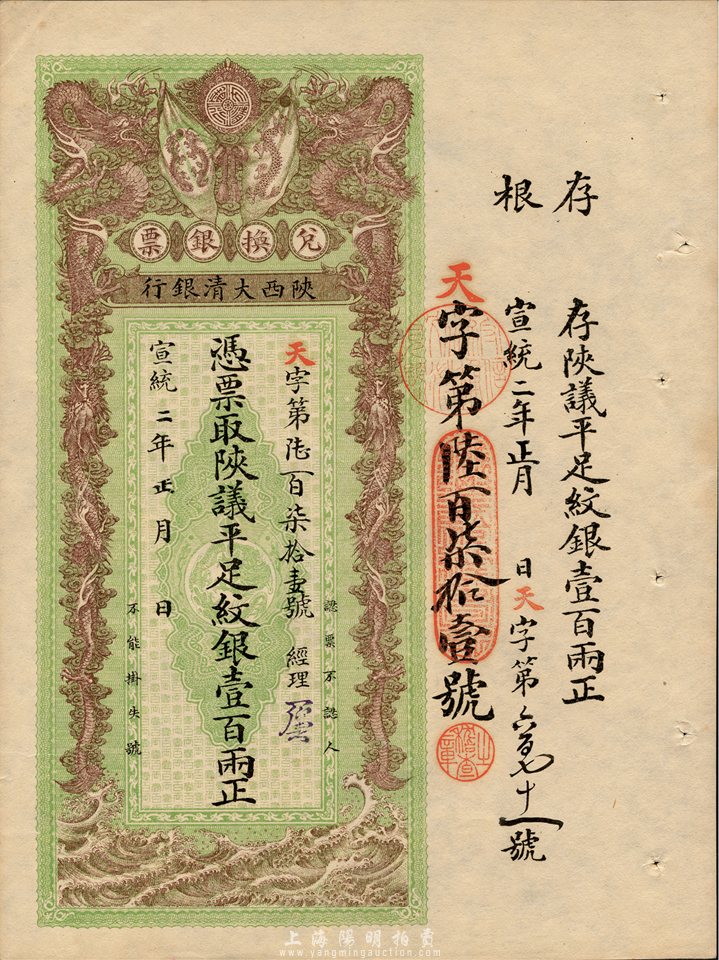 存根
存陝議平足紋銀壹百兩正
宣統二年正月 日天字第六百七十一號
天字第陸百柒拾壹號
稽查之章
兌換銀票
陝西大清銀行
認票不認人
天字第陸百柒拾壹號 經理
憑票取陝議平足紋銀壹百兩正
宣統二年正月 日
不能掛失號
上海陽明拍賣
www.yangmingauction.com